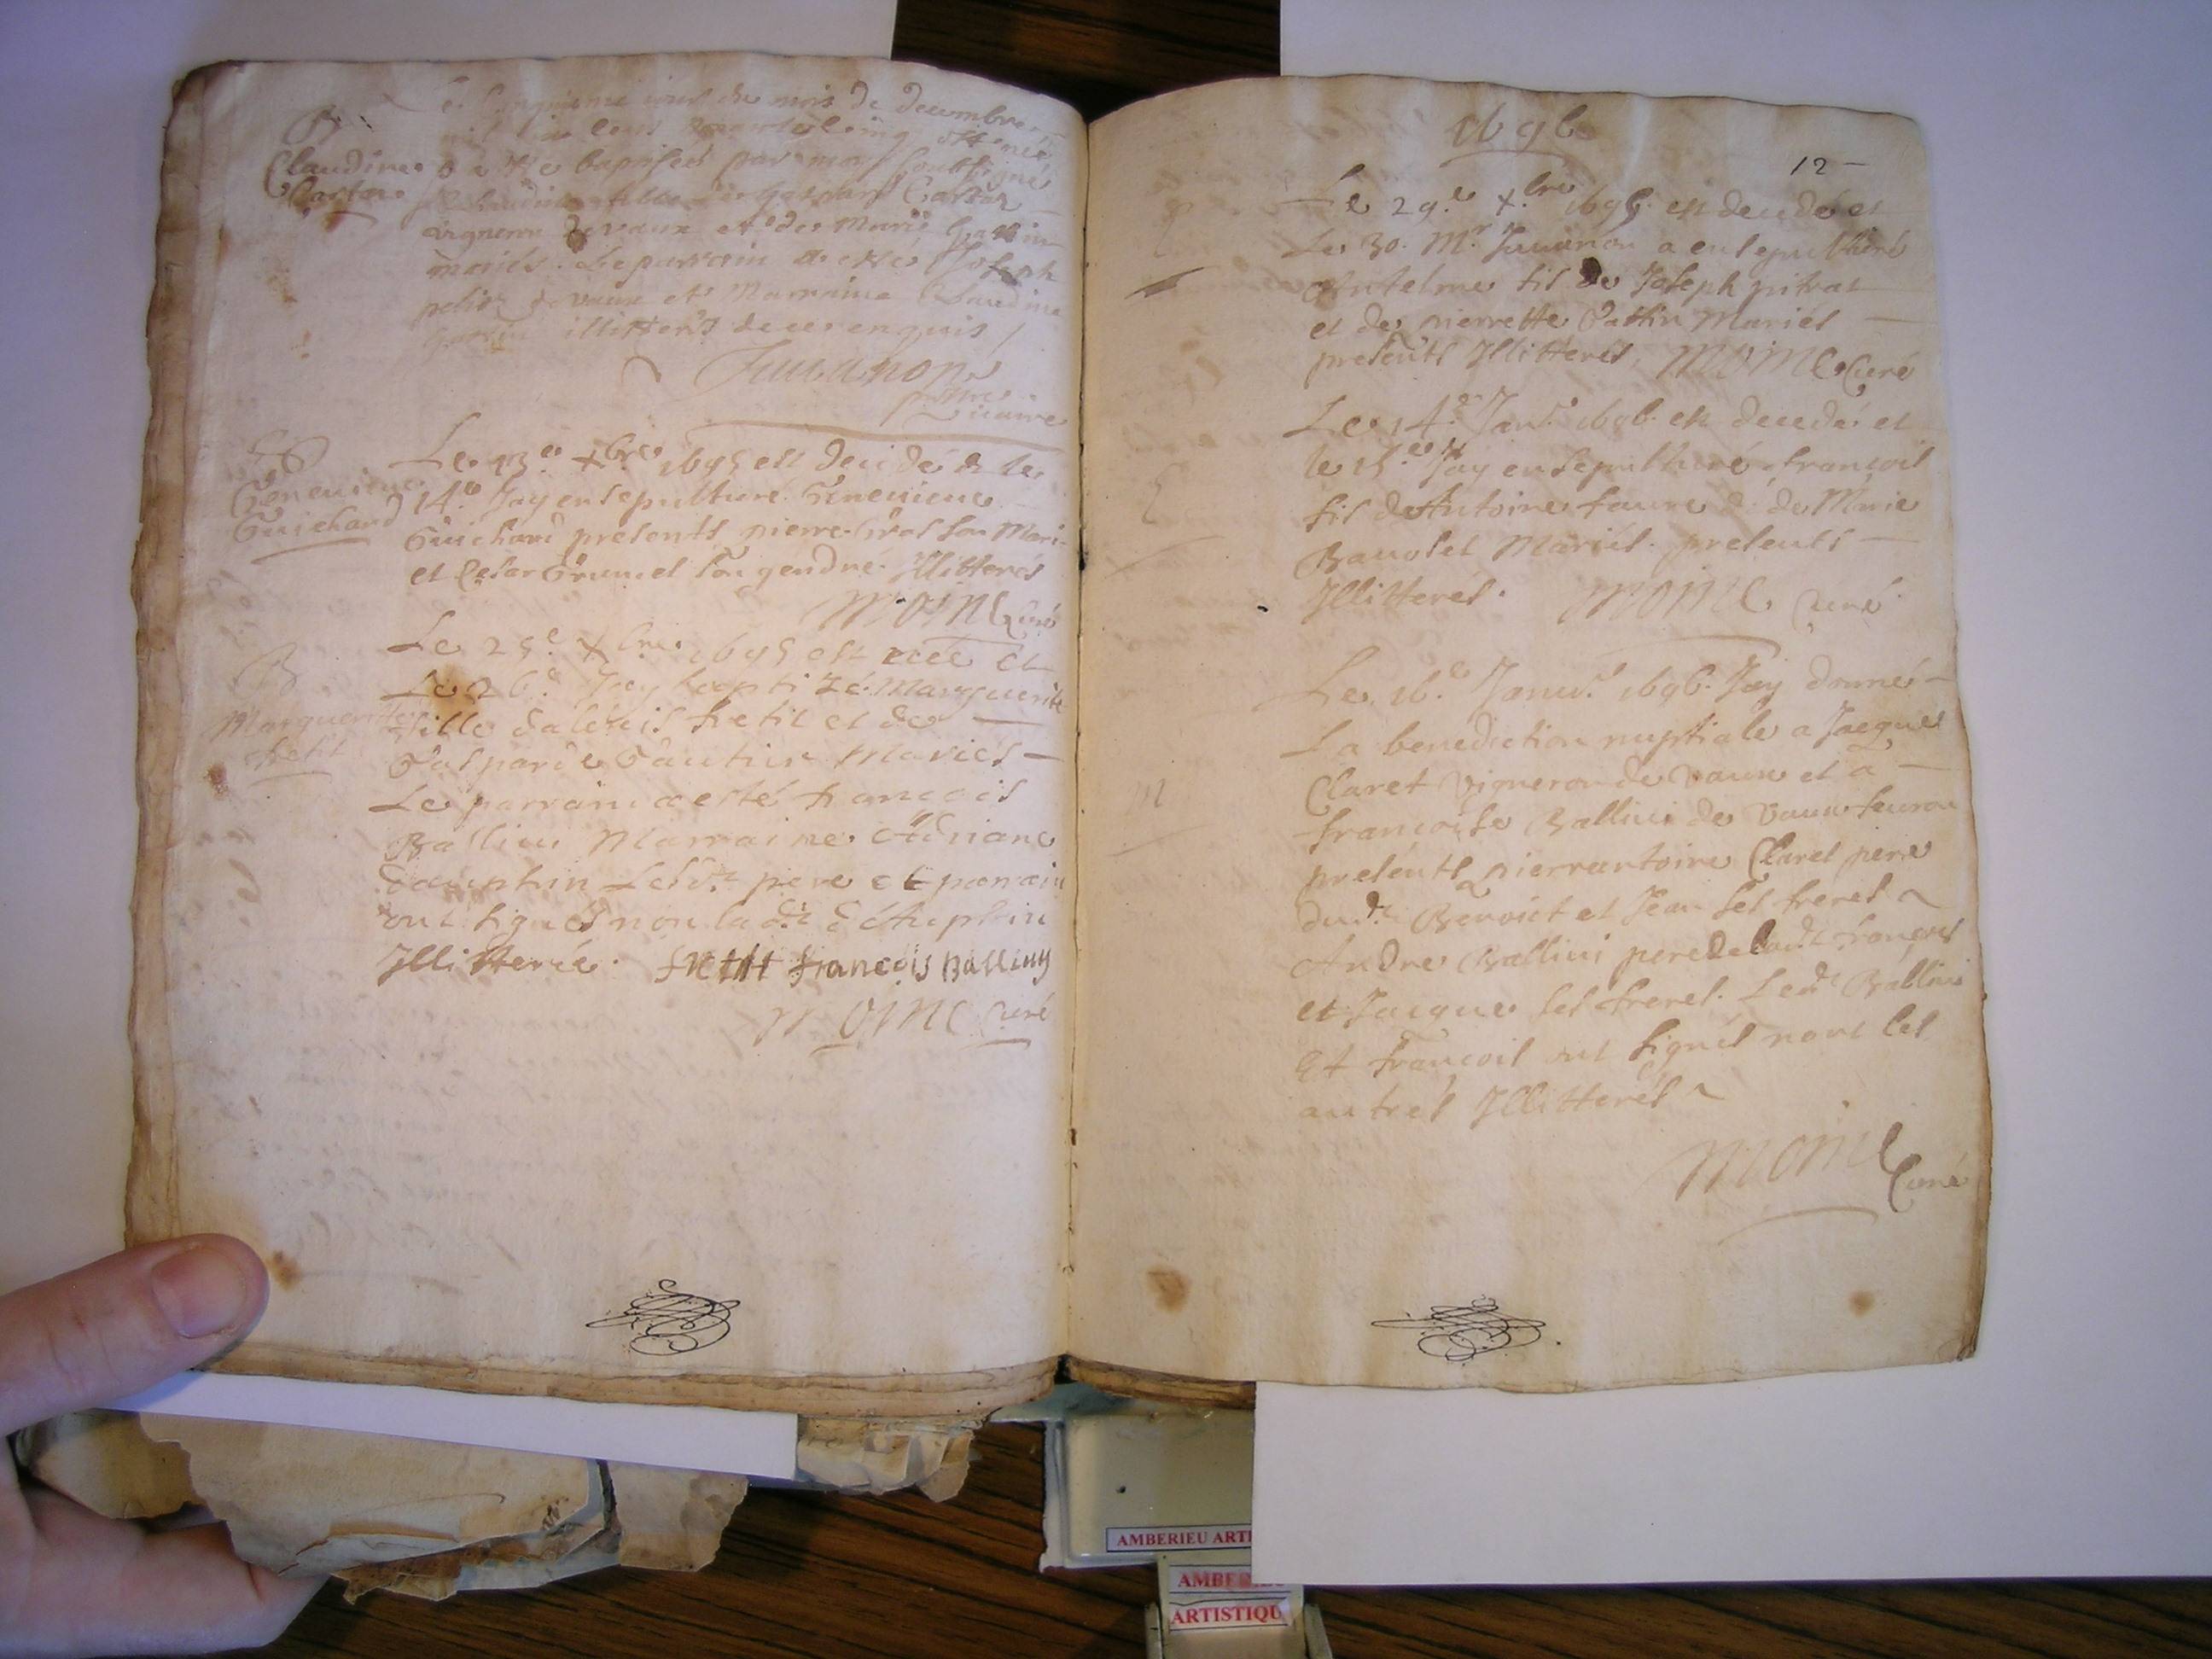 B
Claudine
Cartan
Le cinquieme jour du mois de decembre
mil six cens
a ette baptisée par moy soussigné
Claudine fille de Gaspard Cartan
vigneron de vaux et de Marie
mariés. Le parrain a etté Joseph
de vaux et Marraine Claudine
illitterés de ce enquis
Juvanon
prestre
vicaire
Genevieve
Guichard
Le 13e xbre 1695 est decedé & le
14e Jay ensepulturé Genevieve
Guichard presents pierre son Mari
et Cesar Brunet son gendre Jllitterés
MOINE Curé
B
Marguerite
fretit
Le 25e xbre 1695 est née et
Le 26e Jay baptizé Marguerite
fille dalexis fretit et de
Gasparde Gautier Mariés
Le parrain a esté francois
Ballivi Marraine Adriane
dauphin Lesdt pere et parrain
ont signés non ladte dauphin
Jllitterée. fretit francois Balliuy
MOINE Curé
1696
12
Le 29e xbre 1695 est decedé et
Le 30. Mr Juvanon a ensepulturé
Antelme fils de Joseph pitrat
et de pierrette Mariés
presents Jllitterés, MOINE Curé
Le 14e Janr 1696 est decedé et
le 15e Jay ensepulturé francois
fils dAntoine faure & de Marie
Mariés. presents
Jllitterés. MOINE Curé
M
Le 16e Janvr 1696. Jay donné
La benediction nuptiale a Jacques
Claret Vigneron de Vaux et a
francoise Ballivi de Vaux fevrou
presents pierrantoine Claret pere
dudt Benoict et Jean ses freres
Andre Ballivi pere de ladte francoise
et Jacque ses freres. Ledt Ballivi
Et francois ont signés nont les
autres Jllitterés
MOINE
Curé
AMBERIEU ARTI
ARTISTIQU